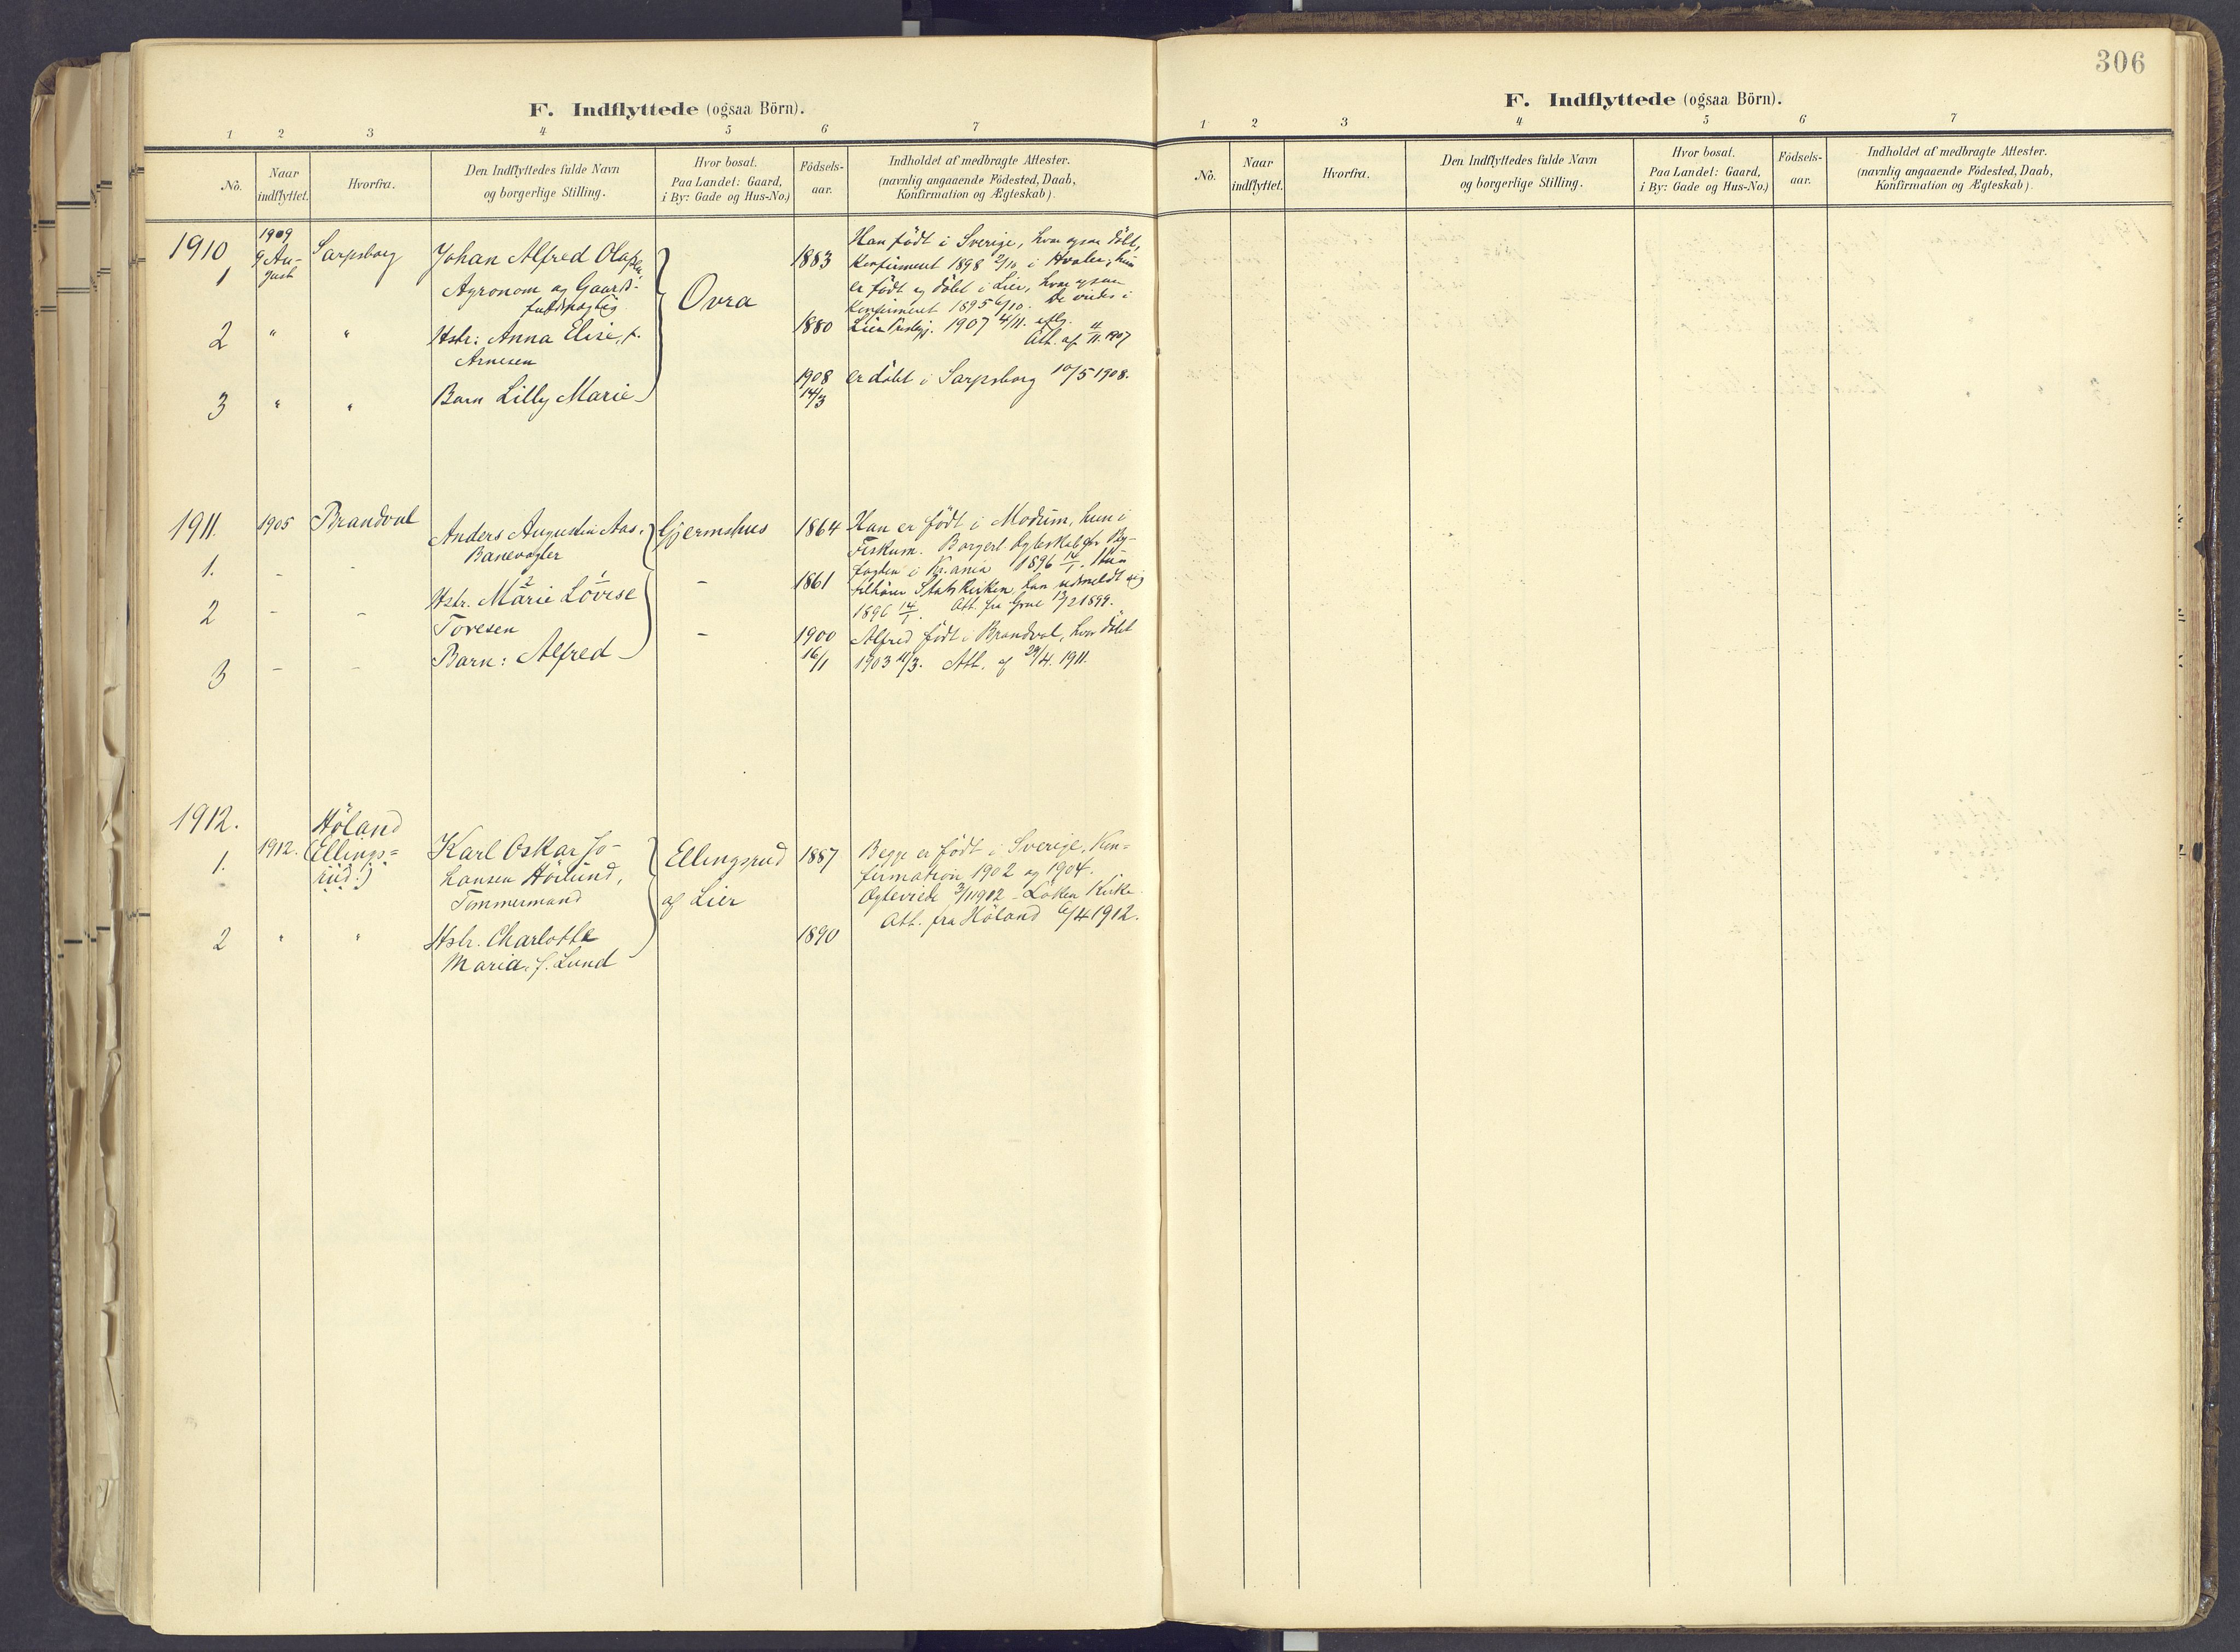 306
F. Indflyttede (ogsaa Börn).
1 2 3 4 5 6 7
No. Naar indflyttet. Hvorfra. Den Indflyttedes fulde Navn og borgerlige Stilling. Hvor bosat. Paa Landet: Gaard, i By: Gade og Hus-No.) Födsels-aar. Indholdet af medbragte Attester. (navnlig angaaende Födested, Daab, Konfirmation og Ægteskab).
1910 1909 Sarpsborg Johan Alfred Olafsen 1883 Han födt i Sverige, hvor ogsaa döbt,
1 9 Au-
gust
Agronom og Gaards-
fuldmægtig
Ovra
Konfirmeret 1898 2/10 i Hvaler, hun
er födt og döbt i Lier, hvor ogsaa
Konfirmeret 1895 6/10. De viedes i
2 " " Hstr: Anna Elise, f. 1880 Lier 1907 4/11. eftg.
Arnesen
Att. af 4/11. 1907
3 " " Barn Lilly Marie 1908 er döbt i Sarpsborg 10/5 1908.
14/3
1911. 1905 Brandval Anders Augustin Aas, Gjermshus 1864 Han er födt i Modum, hun i
1. - - Banevogter Fiskum. Borgerl. Ægteskab for By-
fogden i Kr.ania 1896 14/1. Hun
2 - - Hstr. Marie Lovise - 1861 tilhører Statskirken, han udmeldt sig
2 1
1896 14/1. Att. fra Grue 13/2 1899.
Toresen
3 - - Barn: Alfred - 1900 Alfred födt i Brandval, hvor döbt
16/1 1903 11/3. Att. af 29/4. 1911.
1912. Höland
1. 1912. (Ellings=
rud.)
Karl Oskar Jo- Ellingsrud 1887 Begge er födt i Sverige, Kon=
hansen Hörlund, af Lier firmation 1902 og 1904.
Tömmermand Ægteviede 3/11 1912 Löken Kirke.
Att. fra Höland 6/4 1912.
2 " " Hstr. Charlotte 1890
Maria, f. Lund
F. Indflyttede (ogsaa Börn).
1 2 3 4 5 6 7
No. Naar indflyttet. Hvorfra. Den Indflyttedes fulde Navn og borgerlige Stilling. Hvor bosat. Paa Landet: Gaard, i By: Gade og Hus-No.) Födsels-aar. Indholdet af medbragte Attester. (navnlig angaaende Födested, Daab, Konfirmation og Ægteskab).